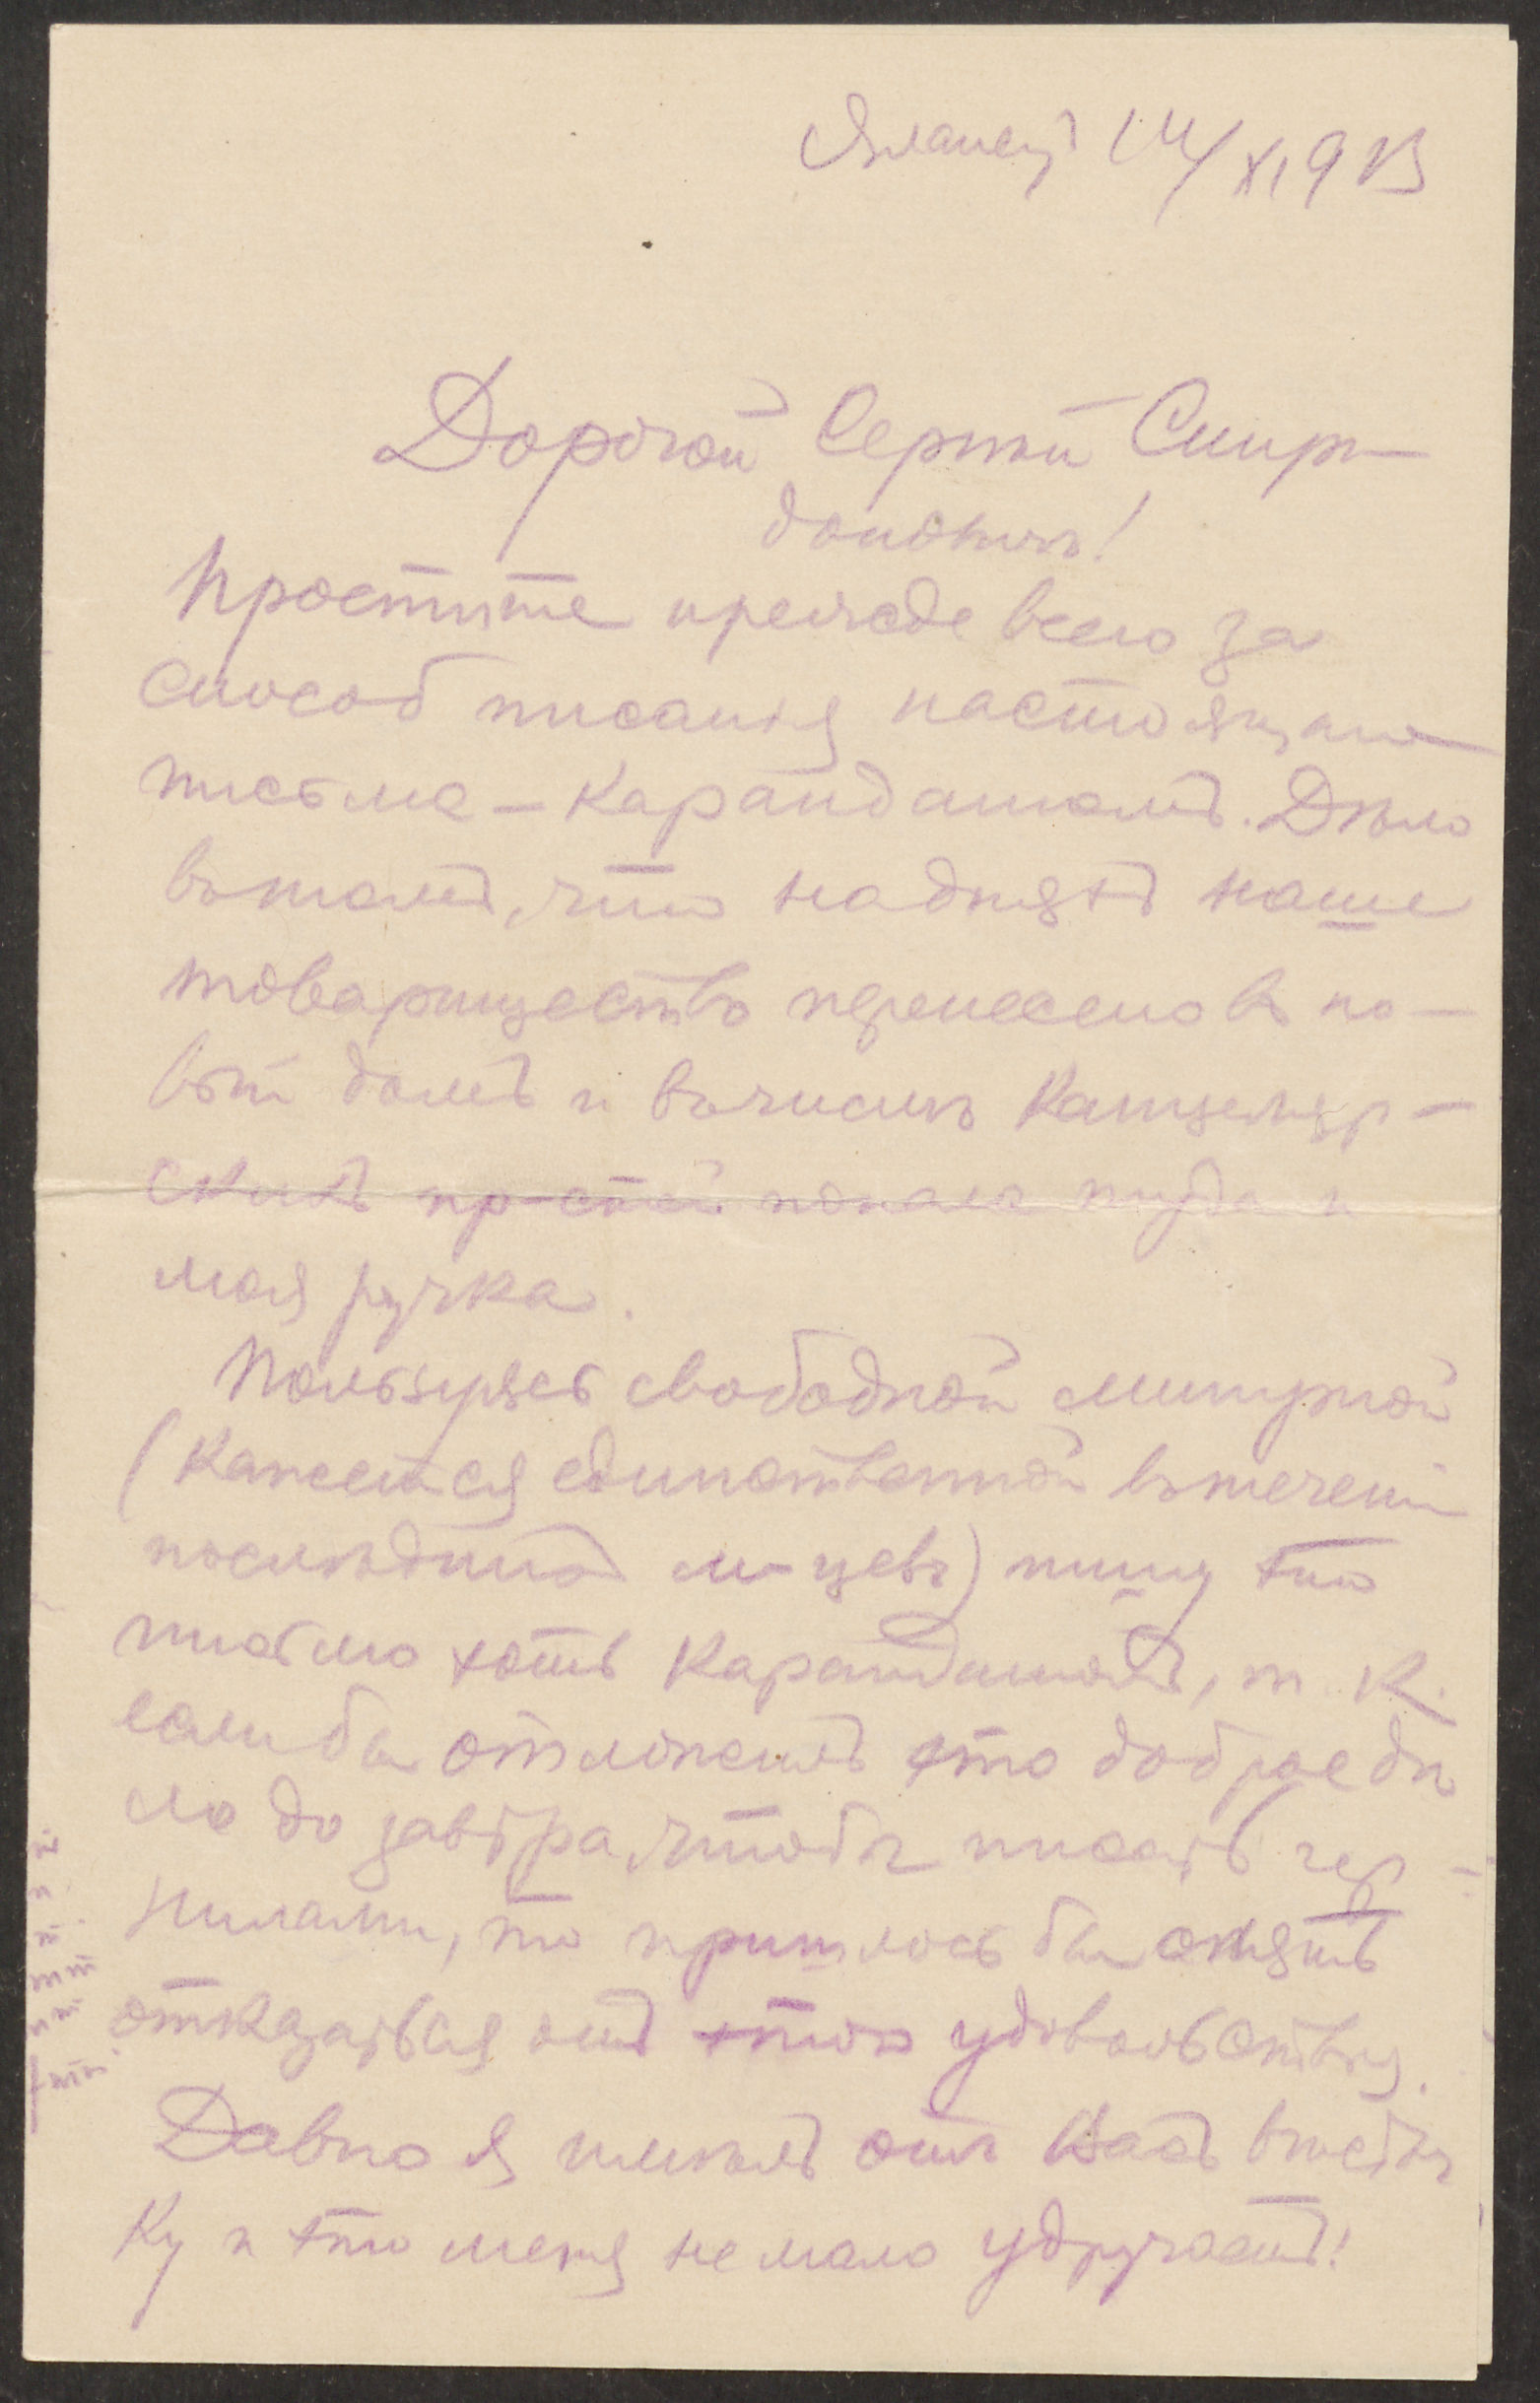 Яланецъ 14/XI 913
Дорогой Сергѣй Спири-
доновичъ!
Простите прежде всего за
способ писанія настоящаго
письма – карандашомъ. Дѣло
въ томъ, что на дняхъ наше
товарищество перенесено въ но-
вый домъ и въ числѣ канцеляр-
скихъ пр-стей попала туда и
моя ручка.
Пользуясь свободной минутой
(кажется единственной въ теченіи
послѣднихъ м-цевъ) пишу это
письмо хоть карандашомъ, т. к.
если бы отложилъ это доброе дѣ
ло до завтра, чтобы писать чер-
нилами, то пришлось бы опять
отказаться отъ этого удовольствія.
Давно я имѣлъ отъ Васъ вѣсточ
ку и это меня не мало удручаетъ!